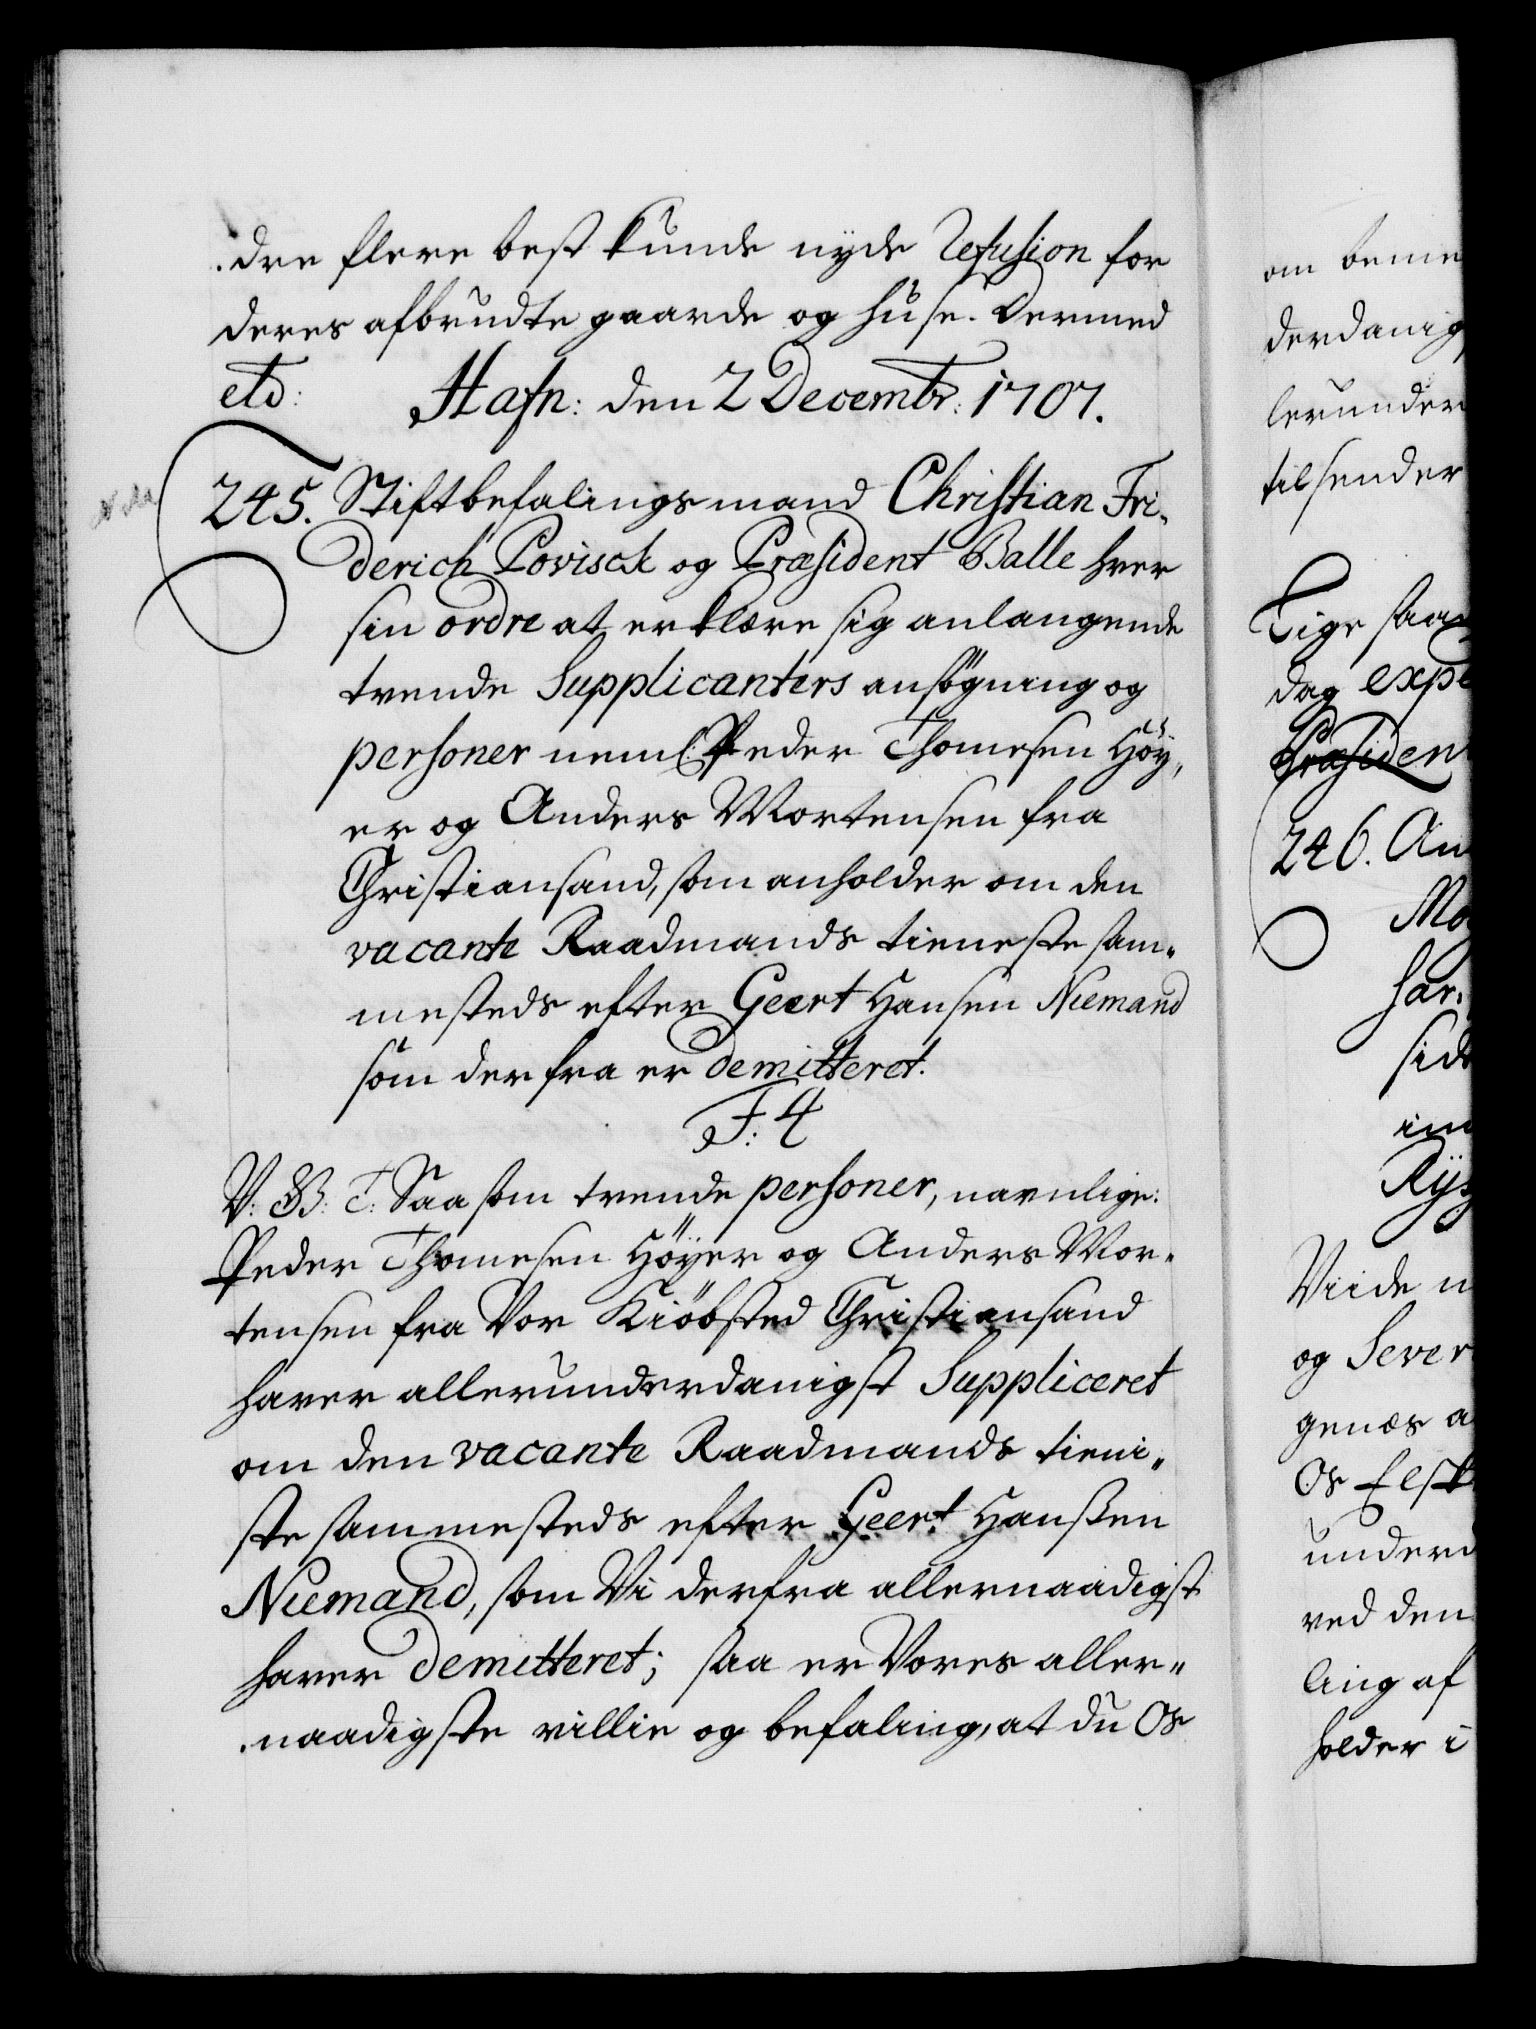 dre flere best kunde nyde Refusion for
deres afbrudte gaarde og huse. Dermed
etc: Hafn: den 2 Decembr: 1707.
245. Stiftbefalingsmand Christian Fri-
derich Povisch og Præsident Balle hver
sin ordre at erklære sig anlangende
trende Supplicanters ansögning og
personer neml: Peder Thomesen Höy-
er og Anders Mortensen fra
Christiansand, som anholder om den
vacante Raadmands tieneste sam-
mesteds efter Geert Hansen Niemand
som der fra er demitteret.
F: 4
V: G: T: Saasom trende personer, navnlige:
Peder Thomesen Höyer og Anders Mor-
tensen fra Vor Kiöbsted Christiansand
haver allerunderdanigst Suppliceret
om den vacante Raadmands tieni-
ste sammesteds efter Geert Hanßen
Niemand, som Vi derfra allernaadigst
haver demitteret; saa er Vores aller-
naadigste villie og befaling, at du Os
om beme
derdanig
lerunder
tilsender
Lige saa
dag expe
Præsident
246. An
Mo
har
side
im
Rys
Viide
og Sever
genæs a
Os Elsk
underd
ved den
ling af
holder i